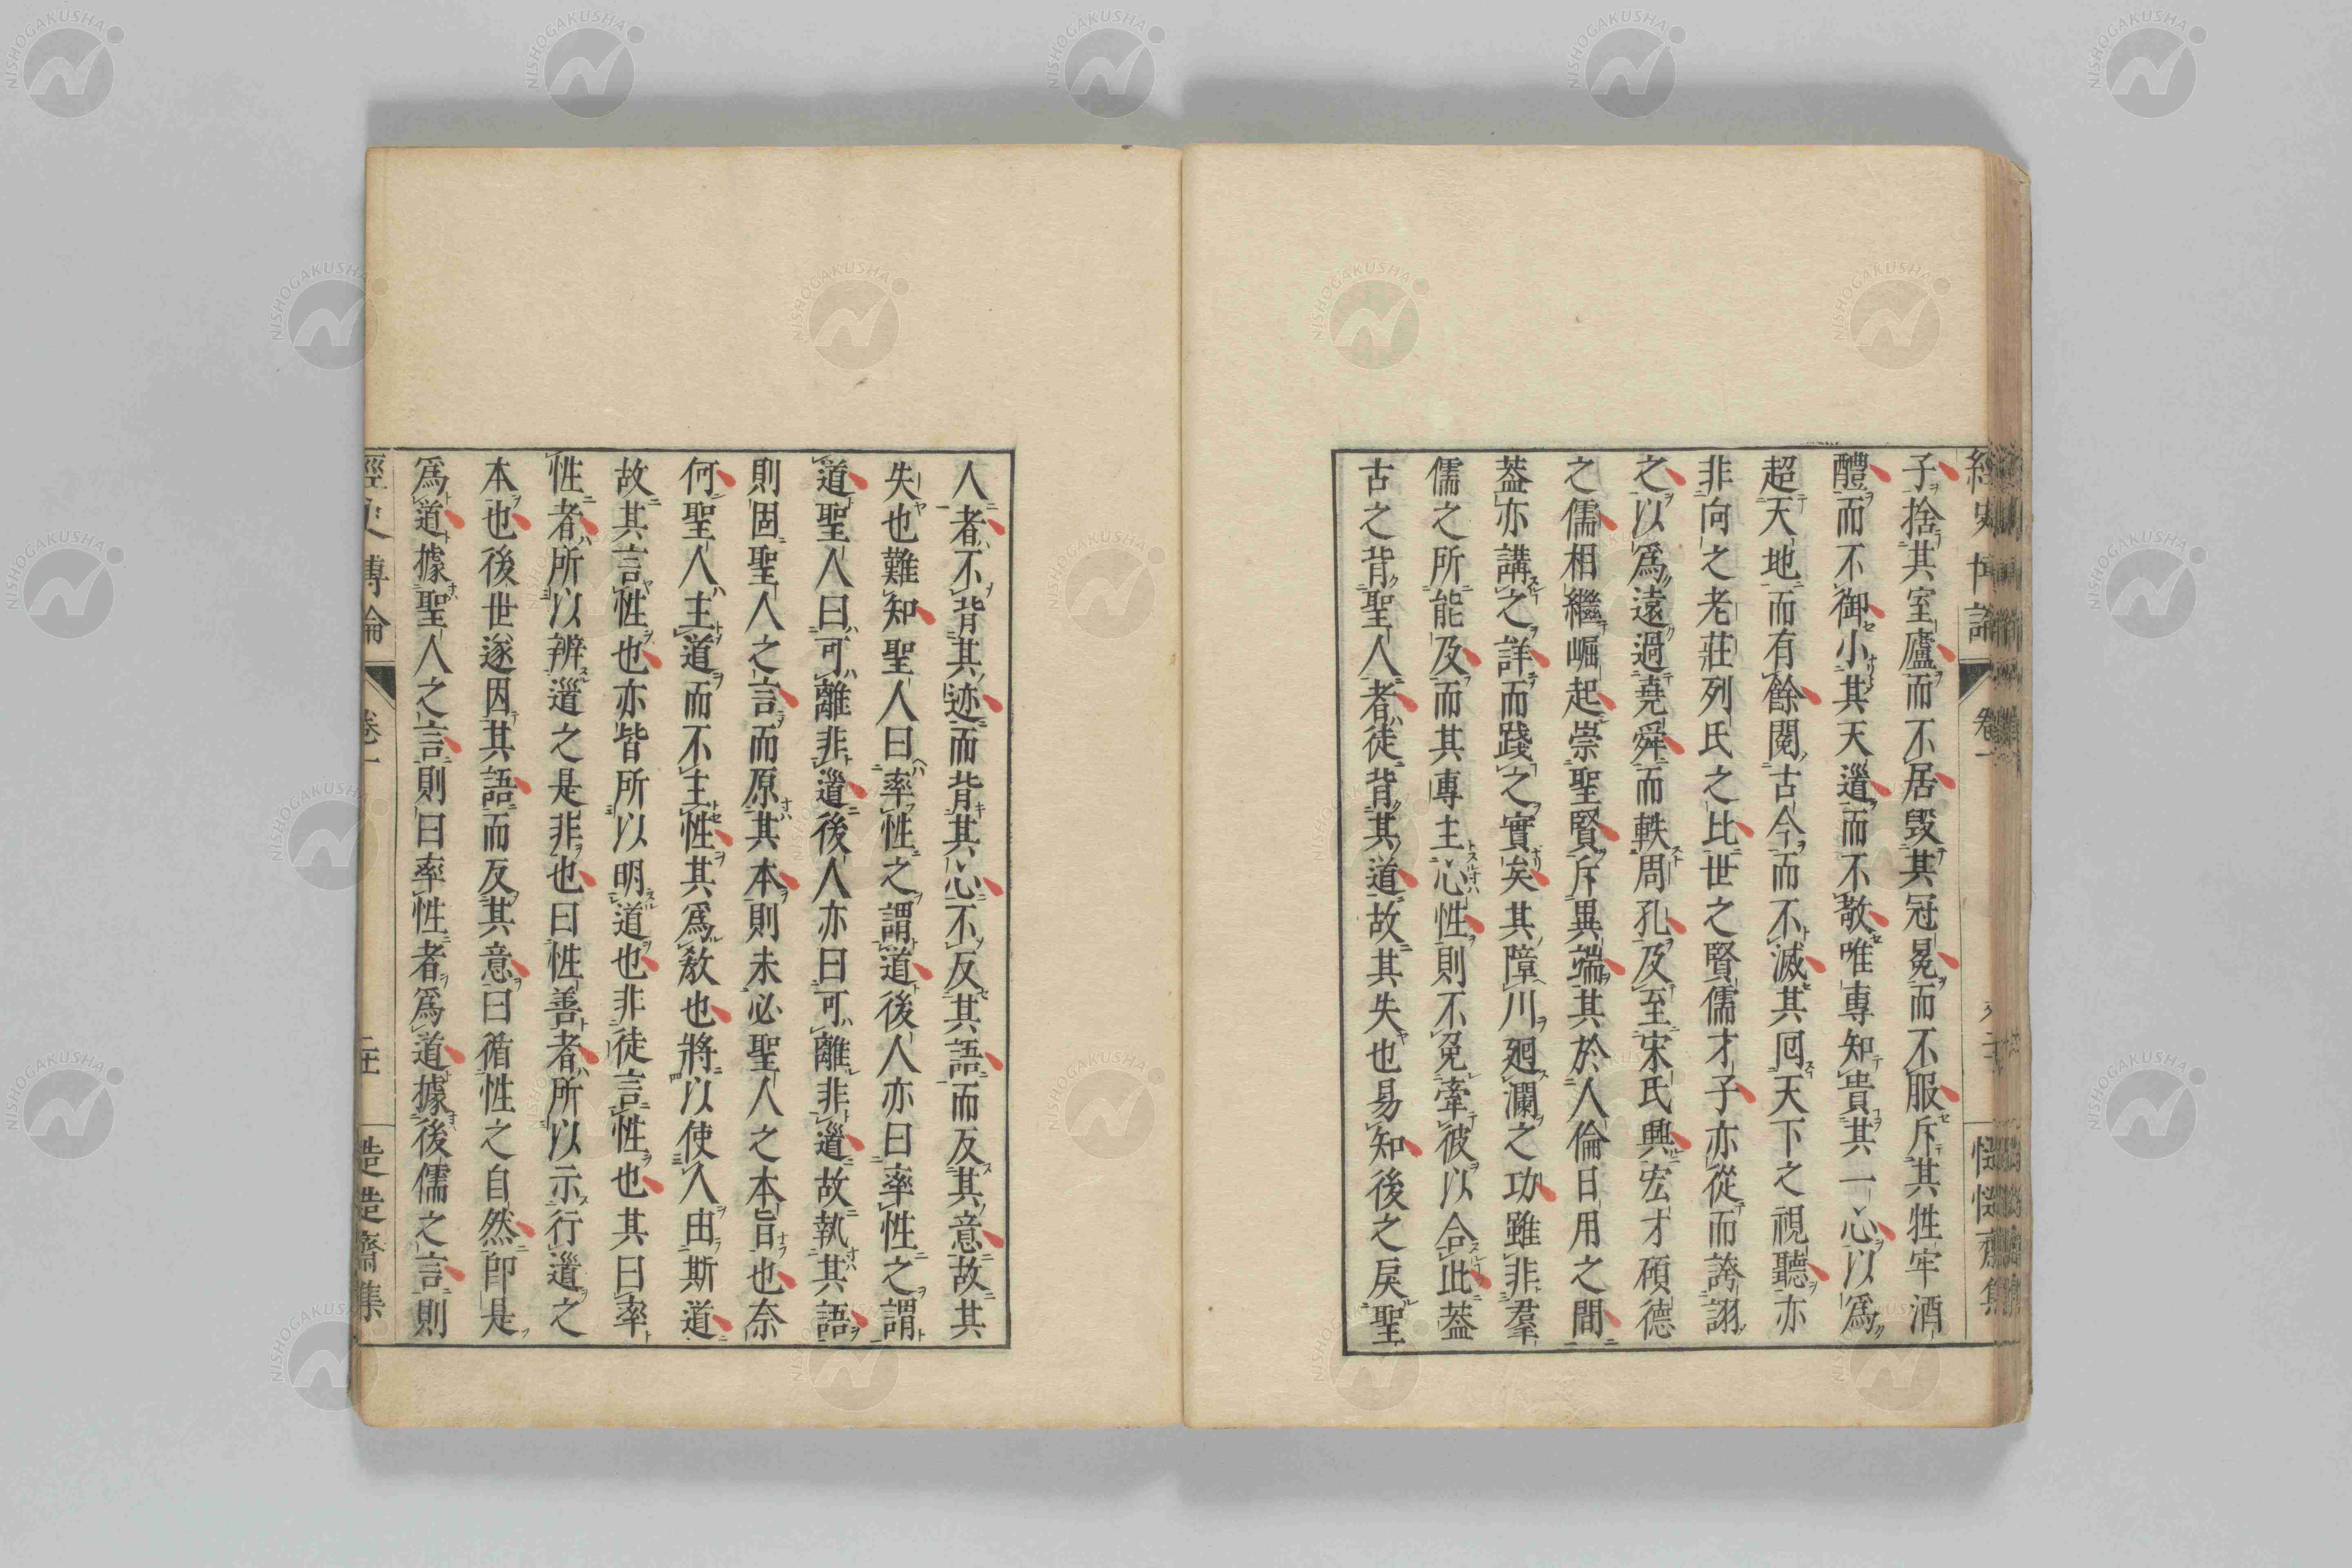 子捨其室廬而不居毀其冠冕而不服斥其牲牢酒
醴而不御小其天道而不敬唯專知貴其一心以爲
超天地而有餘閱古今而不滅其回天下之視聽亦
非向之老莊列氏之比世之賢儒才子亦從而誇詡
之以爲遠過堯舜而軼周孔及至宋氏興宏才碩德
之儒相繼崛起崇聖賢斥異端其於人倫日用之間
葢亦講之詳而踐之實矣其障川廻瀾之功雖非羣
儒之所能及而其專主心性則不免牽彼以合此葢
古之背聖人者徒背其道故其失也易知後之戾聖
人者不背其迹而背其心不反其語而反其意故其
失也難知聖人曰率性之謂道後人亦曰率性之謂
道聖人曰可離非道後人亦曰可離非道故執其語
則固聖人之言而原其本則未必聖人之本旨也奈
何聖人主道而不主性其爲敎也將以使人由斯道
故其言性也亦皆所以明道也非徒言性也其曰率
性者所以辨道之是非也曰性善者所以示行道之
本也後世遂因其語而反其意曰循性之自然卽是
爲道據聖人之言則曰率性者爲道據後儒之言則
經史博論
卷一
NISHOGAKUSHA